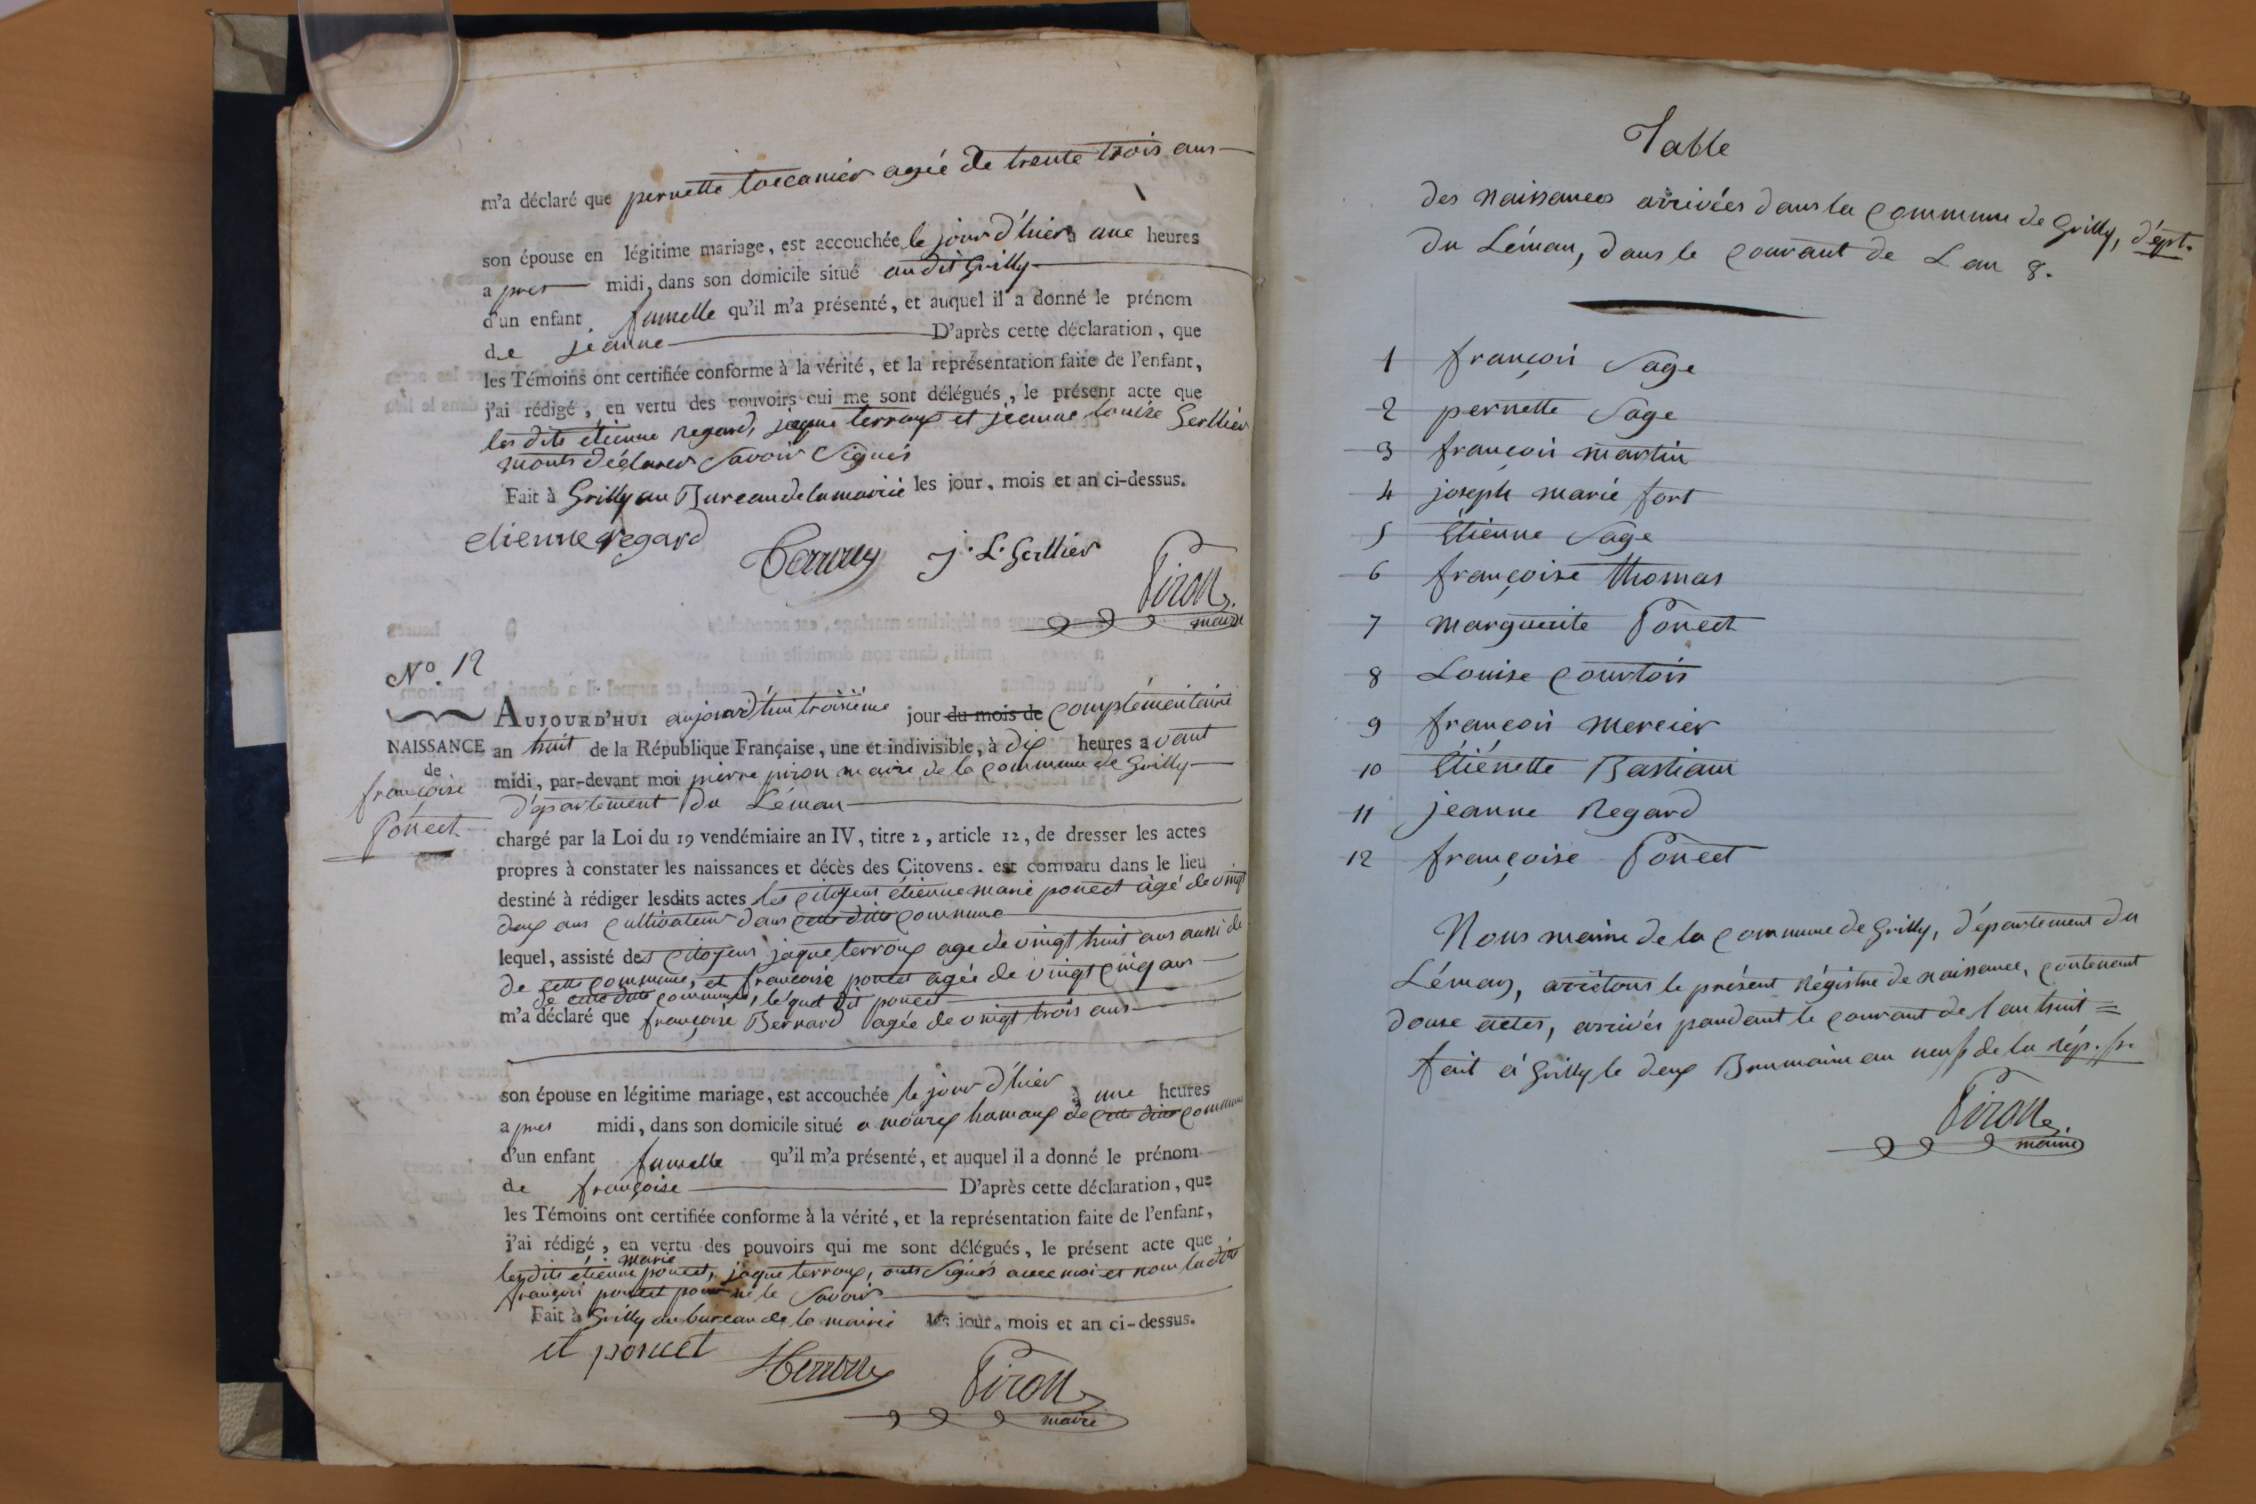 m'a déclaré que pernette toccanier agée de trente trois ans
son épouse en légitime mariage, est accouchée le jour d'hier à une heures
a pres midi, dans son domicile situé au dit Grilly
d'un enfant fumelle qu'il m'a présenté, et auquel il a donné le prénom
de jeanne D'après cette déclaration, que
les Témoins ont certifiée conforme à la vérité, et la représentation faite de l'enfant,
j'ai rédigé, en vertu des pouvoirs qui me sont délégués, le présent acte que
les dits étienne regard, jaque terroux et jeanne louise Gerllier
m'onts déclarer Savoir Signés
Fait à Grilly au Bureau de la mairie les jour, mois et an ci-dessus.
etienne regard
Terroux J. L. Gerllier
Piron
maire
N°. 12
NAISSANCE
de
françoise
Poncet
AUJOURD'HUI aujourd'hui troisième jour du mois de complémentaire
an huit de la République Française, une et indivisible, à dix heures avant
midi, par-devant moi pierre piron maire de la commune de Grilly
département du Léman
chargé par la Loi du 19 vendémiaire an IV, titre 2, article 12, de dresser les actes
propres à constater les naissances et décès des Citoyens. est comparu dans le lieu
destiné à rédiger lesdits actes les citoyens étienne marie poncet âgé de vingt
deux ans cultivateur dans cette ditte commune
lequel, assisté des citoyens jaque terroux age de vingt huit ans aussi de
de cette commune, et françoise poncet agée de vingt cinq ans
de cette ditte commune, lequel dit poncet
m'a déclaré que françoise Bernard agée de vingt trois ans
son épouse en légitime mariage, est accouchée le jour d'hier à une heures
a pres midi, dans son domicile situé a mourex hamaux de cette ditte commune
d'un enfant fumelle qu'il m'a présenté, et auquel il a donné le prénom
de françoise D'après cette déclaration, que
les Témoins ont certifiée conforme à la vérité, et la représentation faite de l'enfant,
j'ai rédigé, en vertu des pouvoirs qui me sont délégués, le présent acte que
marie
lesdits étienne poncet, jaque terroux, onts Signés avec moi et nom la dite
françois poncet pour ne le Savoir
Fait à Grilly au bureau de la mairie les jour, mois et an ci-dessus.
et poncet Terroux Piron
maire
Table
des Naissances arrivées dans la commune de Grilly, dépt.
du Léman, dans le courant de L an 8.
1 françois Sage
2 pernette Sage
3 françois martin
4 joseph marie fort
5 Étienne Sage
6 françoise thomas
7 marguerite Poncet
8 Louise courtois
9 françois mercier
10 Étiénette Bastian
11 jeanne Regard
12 françoise Poncet
Nous maire de la commune de Grilly, département du
Léman, arrêtons le présent Régistre de naissance, contenant
douse actes, arrivés pandant le courant de l'an huit =
fait à Grilly le deux Brumaire an neuf de la rép. fr.
Piron
maire